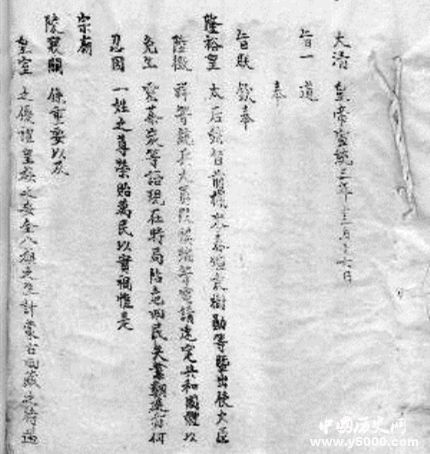 大清 皇帝宣統三年十二月十六日
旨一道
奉
旨朕欽奉
隆裕皇 太后懿旨前據岑春煊袁樹勛等暨出使大臣
陸徵 祥等統兵大員段祺瑞等電請速定共和國體以
免生 靈塗炭等語現在時局阽危四民失業朝廷亦何
忍因 一姓之尊榮貽萬民以實禍惟是
宗廟
陵寢關 係重要以及
皇室 之優禮皇族之安全八旗之生計蒙古回藏之待遇
中國历史网
www.y5000.com